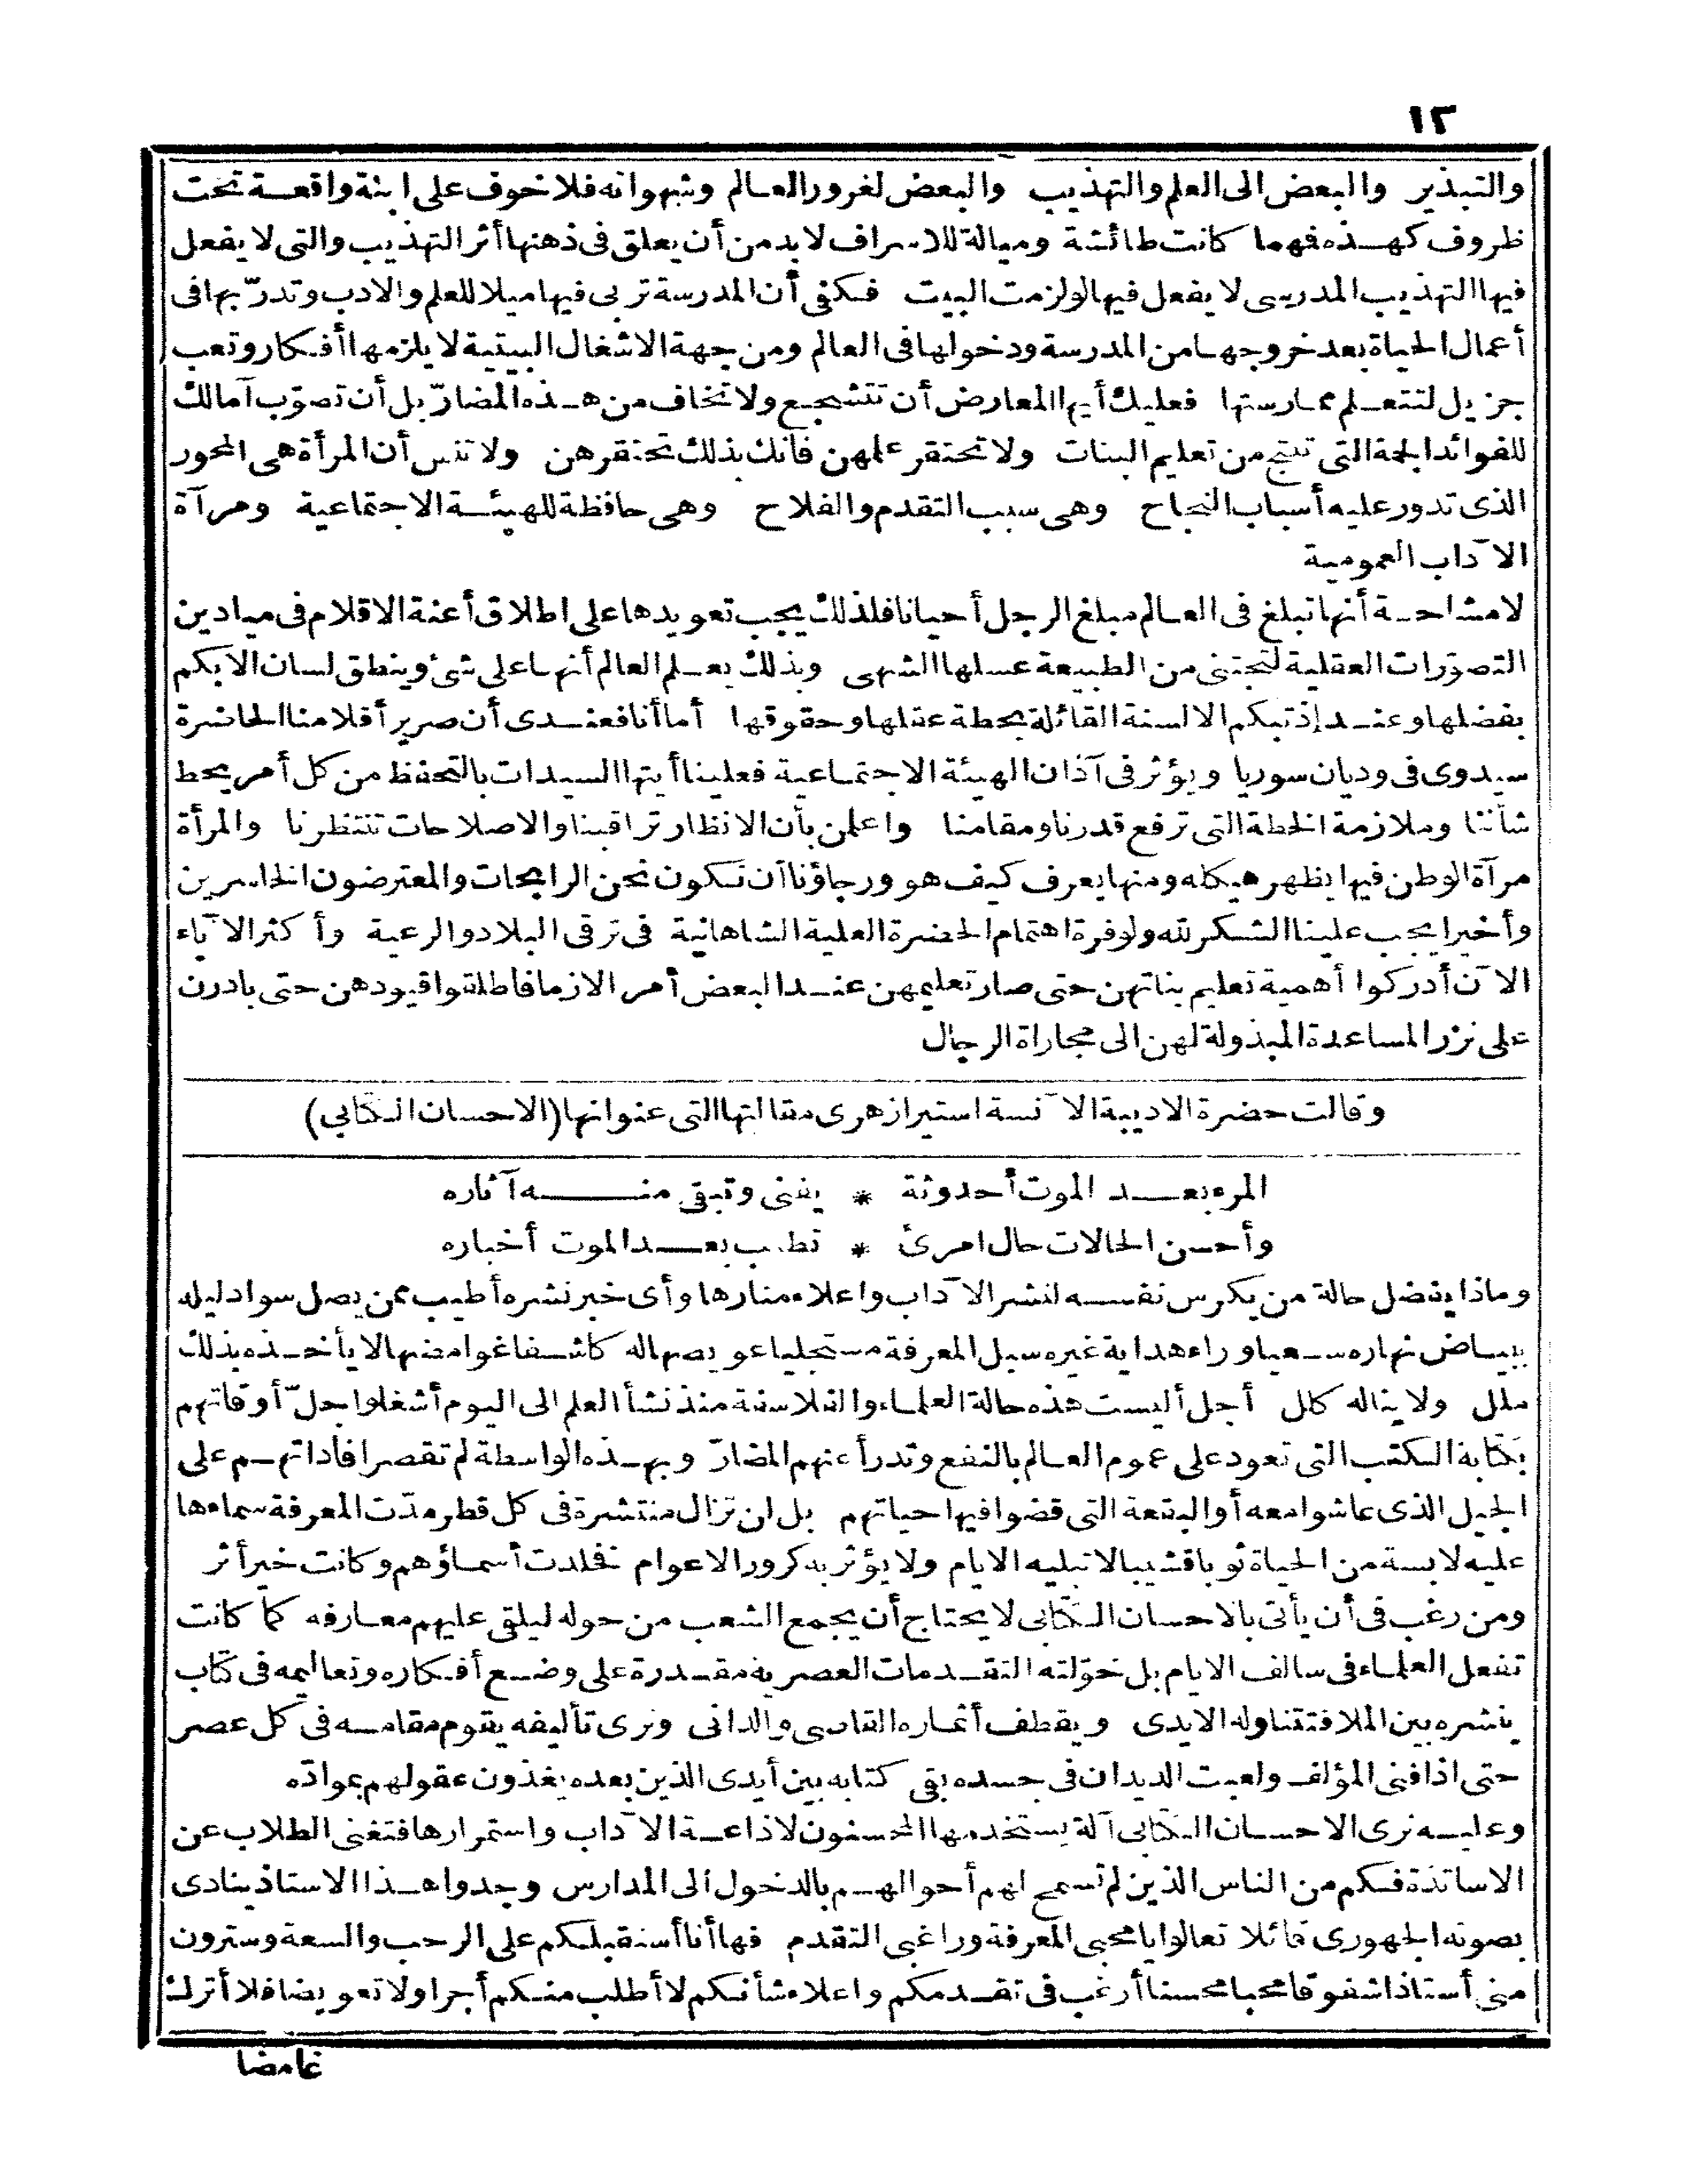 ١٢
والتبذير والبعض الى العلم والتهذيب والبعض لغرور العالم وشهواته فلا خوف على ابنة واقعة تحت
ظروف كهذه فهما كانت طائشة وميالة للاسراف لابد من أن يعلق فى ذهنها أثر التهذيب والتى لا يفعل
فيها التهذيب المدرسى لا يفعل فيها لو لزمت البيت فكفى أن المدرسة تربى فيها ميلا للعلم والادب وتدرّبها فى
أعمال الحياة بعد خروجها من المدرسة ودخولها فى العالم ومن جهة الاشغال البيتية لا يلزمها أفكار وتعب
جزيل لتتعلم ممارستها فعليك أيها المعارض أن تتشجع ولا تخاف من هذه المضارّ بل أن تصوّب آمالك
للفوائد الجمة التى تنتج من تعليم البنات ولا تحتقر علمهن فانك بذلك تحتقرهن ولا تنس أن المرأة هى المحور
الذى تدور عليه أسباب النجاح وهى سبب التقدم والفلاح وهى حافظة للهيئة الاجتماعية ومرآة
الآداب العمومية
لا مشاحة أنها تبلغ فى العالم مبلغ الرجل أحيانا فلذلك يجب تعويدها على اطلاق أعنة الاقلام فى ميادين
التصوّرات العقلية لتجتنى من الطبيعة عسلها الشهى وبذلك يعلم العالم أنها على شئ وينطق لسان الابكم
بفضلها وعند إذ تبكم الالسنة القائلة بحطة عقلها وحقوقها أما أنا فعندى أن صرير أقلامنا الحاضرة
سيدوى فى وديان سوريا ويؤثر فى آذان الهيئة الاجتماعية فعلينا أيتها السيدات بالتحفظ من كل أمر يحط
شأننا وملازمة الخطة التى ترفع قدرنا ومقامنا واعلمن بأن الانظار تراقبنا والاصلاحات تنتظرنا والمرأة
مرآة الوطن فيها يظهر هيكله ومنها يعرف كيف هو ورجاؤنا أن نكون نحن الرابحات والمعترضون الخاسرين
وأخيرا يجب علينا الشكر لله ولوفرة اهتمام الحضرة العلية الشاهانية فى ترقى البلاد والرعية وأكثر الآباء
الآن أدركوا أهمية تعليم بناتهن حتى صار تعليمهن عند البعض أمرا لازما فاطلقوا قيودهن حتى بادرن
على نزر المساعدة المبذولة لهن الى مجاراة الرجال
وقالت حضرة الاديبة الآنسة استيرازهرى مقالتها التى عنوانها (الاحسان الكتابي)
المرء بعد الموت أحدوثة * يفنى وتبقى منه آثاره
وأحسن الحالات حال امرئ * تطيب بعد الموت أخباره
وماذا يفضل حالة من يكرس نفسه لنشر الآداب واعلاء منارها وأى خبر نشره أطيب ممن يصل سواد ليله
ببياض نهاره سعيا وراء هداية غيره سبل المعرفة مستجليا عويصها له كاشفا غوامضها لا يأخذه بذلك
ملل ولا يناله كلل أجل أليست هذه حالة العلماء والفلاسفة منذ نشأ العلم الى اليوم أشغلوا جلّ أوقاتهم
بكتابة الكتب التى تعود على عموم العالم بالنفع وتدرأ عنهم المضارّ وبهذه الواسطة لم تقصر افاداتهم على
الجيل الذى عاشوا معه أو البقعة التى قضوا فيها حياتهم بل لن تزال منتشرة فى كل قطر مدّت المعرفة سماءها
عليه لابسة من الحياة ثوبا قشيبا لا تبليه الايام ولا يؤثر به كرور الاعوام فخلدت أسماؤهم وكانت خير أثر
ومن رغب فى أن يأتى بالاحسان الكتابى لا يحتاج أن يجمع الشعب من حوله ليلقى عليهم معارفه كما كانت
تفعل العلماء فى سالف الايام بل خوّلته التقدمات العصرية مقدرة على وضع أفكاره وتعاليمه فى كتاب
ينشره بين الملا فتتناوله الايدى ويقطف أثماره القاصى والدانى ونرى تأليفه يقوم مقامه فى كل عصر
حتى اذا فنى المؤلف ولعبت الديدان فى جسده بقى كتابه بين أيدى الذين بعده يغذون عقولهم بموادّه
وعليه نرى الاحسان الكتابى آلة يستخدمها المحسنون لاذاعة الآداب واستمرارها فتغنى الطلاب عن
الاساتذة فكم من الناس الذين لم تسمح لهم أحوالهم بالدخول الى المدارس وجدوا هذا الاستاذ ينادى
بصوته الجهورى قائلا تعالوا يا محبى المعرفة وراغبى التقدم فها أنا أستقبلكم على الرحب والسعة وسترون
منى أستاذا شفوقا محبا محسنا أرغب فى تقدمكم واعلاء شأنكم لا أطلب منكم أجرا ولا تعويضا فلا أترك
غامضا